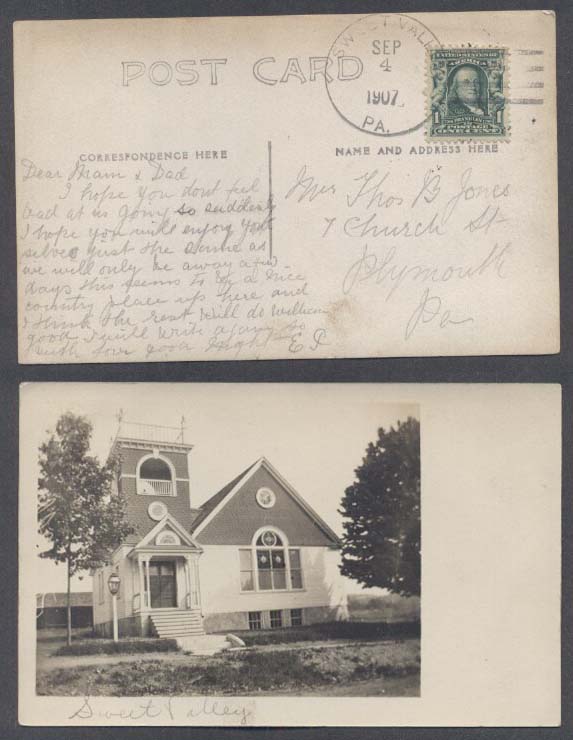 POST CARD
SWEET VALLEY
SEP
4
1907
PA.
UNITED STATES OF AMERICA
1 FRANKLIN 1
POSTAGE
ONE CENT
CORRESPONDENCE HERE
NAME AND ADDRESS HERE
Dear Mam & Dad
I hope you dont feel
bad at us going so suddenly
I hope you will enjoy your
selves just the same as
we will only be away a few
days this seems to be a nice
country place up here and
I think the rest will do William
good I will write again so
with love good night E J
Mrs Thos B Jones
7 Church St
Plymouth
Pa
Sweet Valley